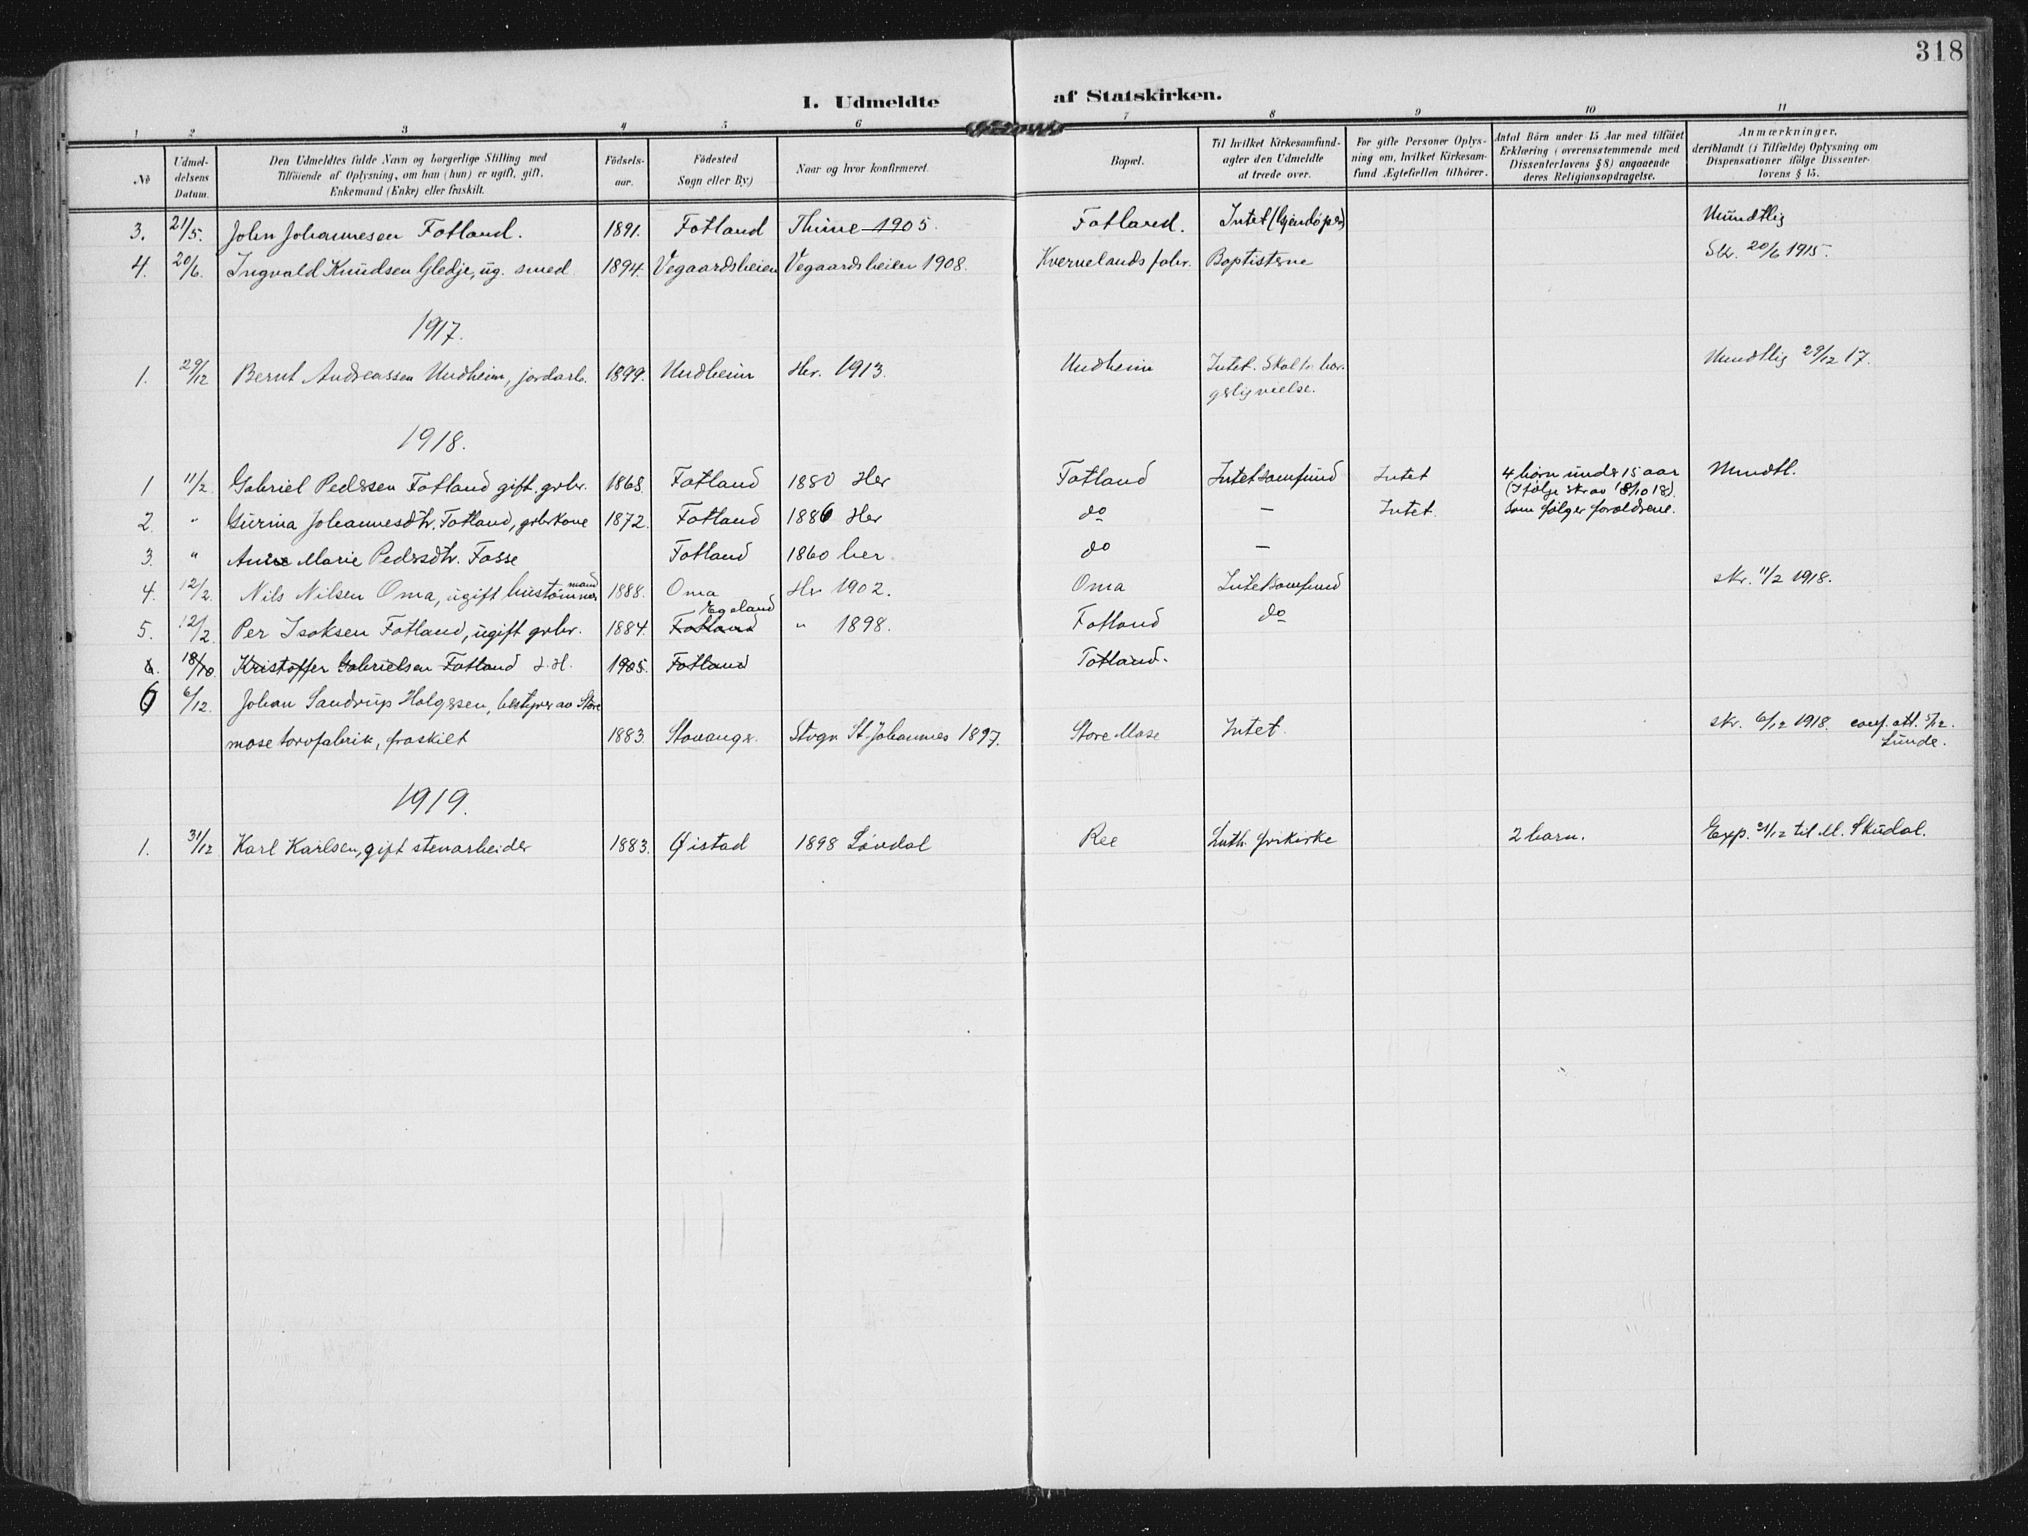 318
I. Udmeldte af Statskirken.
1 2 3 4 5 6 7 8 9 10 11
No
Udmeldelsens Datum.
Den Udmeldtes fulde Navn og borgerlige Stilling med
Tilføiende af Oplysning, om han (hun) er ugift, gift,
Enkemand (Enke) eller fraskilt.
Fødselsaar.
Fødested
Sogn eller By.)
Naar og hvor konfirmeret.
Bopæl.
Til hvilket Kirkesamfund
agter den Udmeldte
at træde over.
For gifte Personer Oplysning om, hvilket Kirkesamfund Ægtefællen tilhører.
Antal Børn under 15 Aar med tilføiet
Erklæring (overensstemmende med
Dissenterlovens § 8) angaaende
deres Religionsopdragelse.
Anmærkninger,
deriblandt (i Tilfælde) Oplysning om
Dispensationer ifølge Dissenterlovens § 15.
3. 21/5. John Johannesen Fotland. 1891. Fotland Thime 1905. Fotland. Intet (Gjendøper) Mündtlig
4. 20/6. Ingvald Knüdsen Gledje, ug. smed. 1894. Vegaardsheien Vegaardsheien 1908. Kvernelands fabr. Baptisterne Skr. 20/6 1915.
1917.
1. 29/12 Bernt Andreassen Undheim, jordarb. 1899. Undheim Her. 1913. Undheim Intet. Skal ha borgerlig vielse. Mundtlig 29/12 17.
1918.
1 11/2. Gabriel Pedersen Fotland gift, grbr. 1868. Fotland 1880 Her Fotland Intet samfund Intet 4 børn under 15 aar Mundtl.
(Ifølge skr av 18/10 18).
2. " Gurina Johannesdtr. Fotland, grbrkone 1872. Fotland 1886 Her do — Intet. som følger forældrene.
3. " Ane Marie Pedersdtr. Fosse Fotland 1860 her do —
4. 12/2. Nils Nilsen Oma, ugift hustømmermand 1888. Oma Her 1902. Oma Intet samfund skr. 11/2 1918.
5. 12/2 Per Isaksen Fotland, ugift grbr. 1884. Fotland Egeland " 1898. Fotland do
6. 18/10 Kristoffer Gabrielsen Fotland 1905. Fotland Fotland.
6 6/12. Johan Sandrup Holgersen, bestyrer av Store
mose torvfabrik, fraskilt 1883. Stavanger. Stvgr. St. Johannes 1897. Store Mose Intet. skr. 6/12 1918. conf. att. 5/12.
Lunde.
1919.
1. 31/12 Karl Karlsen, gift stenarbeider 1883. Øistad 1898 Løvdal Ree Luth. frikirke 2 barn. Exp. 31/12 til M. Skudal.